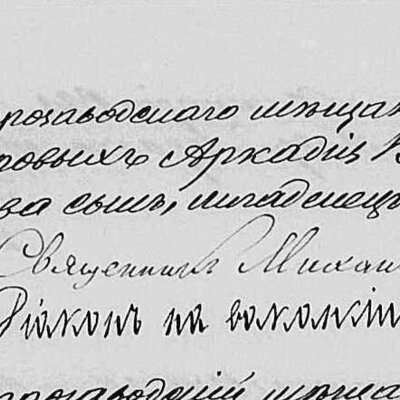 розаводскаго мѣщан
ровыхъ Аркадія В
ва сынъ, младенецъ
Священникъ Михаи
Діаконъ на вакансіи
розаводскій мѣща